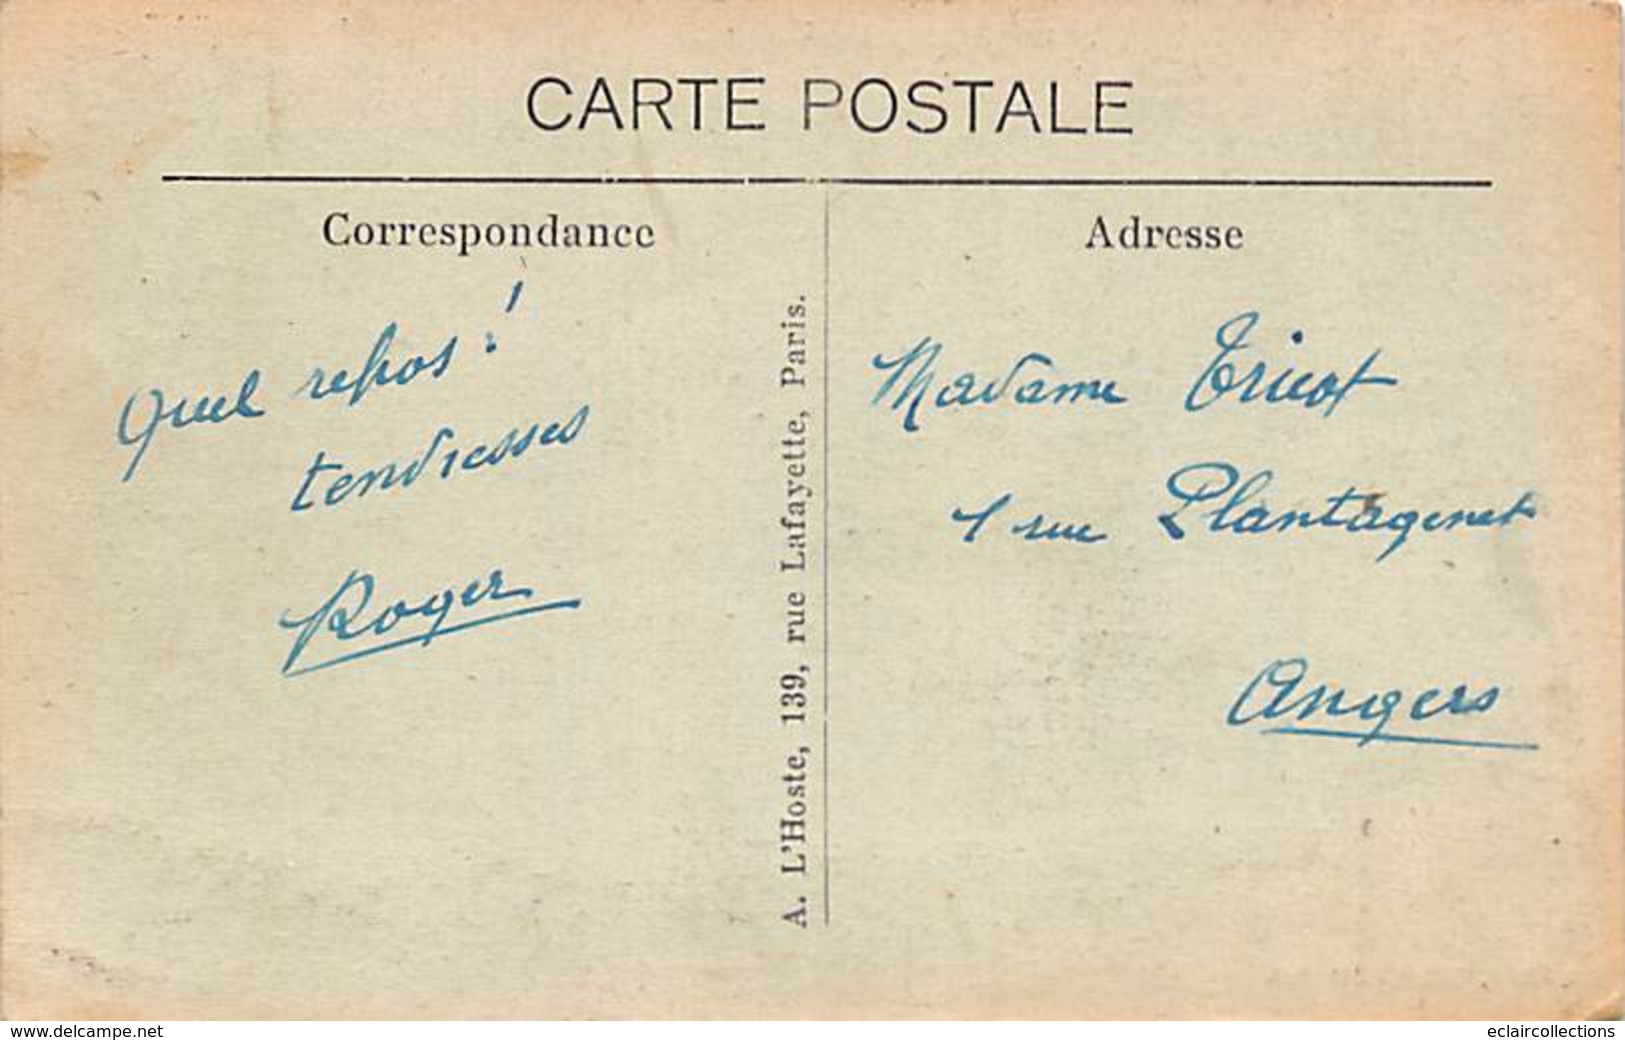 CARTE POSTALE
Correspondance
Quel repos !
tendresses
Roger
A. L'Hoste, 139, rue Lafayette, Paris.
Adresse
Madame Tricot
1 rue Plantagenet
Angers
www.delcampe.net
eclaircollections